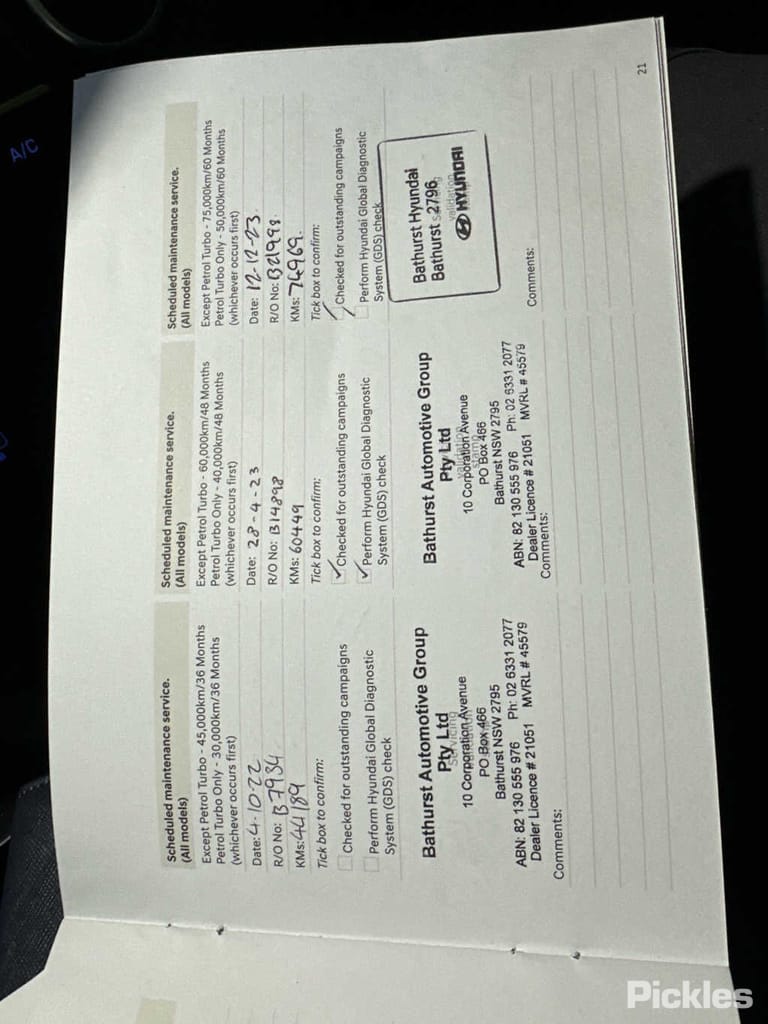 Scheduled maintenance service.
(All models)
Except Petrol Turbo - 45,000km/36 Months
Petrol Turbo Only - 30,000km/36 Months
(whichever occurs first)
Date: 4-10-22
R/O No: B7934
KMs: 44189
Tick box to confirm:
Checked for outstanding campaigns
Perform Hyundai Global Diagnostic
System (GDS) check
Bathurst Automotive Group
Pty Ltd
Servicing
10 Corporation Avenue
PO Box 466
Bathurst NSW 2795
ABN: 82 130 555 976 Ph: 02 6331 2077
Dealer Licence # 21051 MVRL # 45579
Comments:
Scheduled maintenance service.
(All models)
Except Petrol Turbo - 60,000km/48 Months
Petrol Turbo Only - 40,000km/48 Months
(whichever occurs first)
Date: 28-4-23
R/O No: B14898
KMs: 60449
Tick box to confirm:
Checked for outstanding campaigns
Perform Hyundai Global Diagnostic
System (GDS) check
Bathurst Automotive Group
Pty Ltd
validation
10 Corporation Avenue
stamp
PO Box 466
Bathurst NSW 2795
ABN: 82 130 555 976 Ph: 02 6331 2077
Dealer Licence # 21051 MVRL # 45579
Comments:
Scheduled maintenance service.
(All models)
Except Petrol Turbo - 75,000km/60 Months
Petrol Turbo Only - 50,000km/60 Months
(whichever occurs first)
Date: 12-12-23
R/O No: B21998
KMs: 74969
Tick box to confirm:
Checked for outstanding campaigns
Perform Hyundai Global Diagnostic
System (GDS) check
Bathurst Hyundai
Bathurst 2796
validation
HYUNDAI
Comments:
21
A/C
Pickles